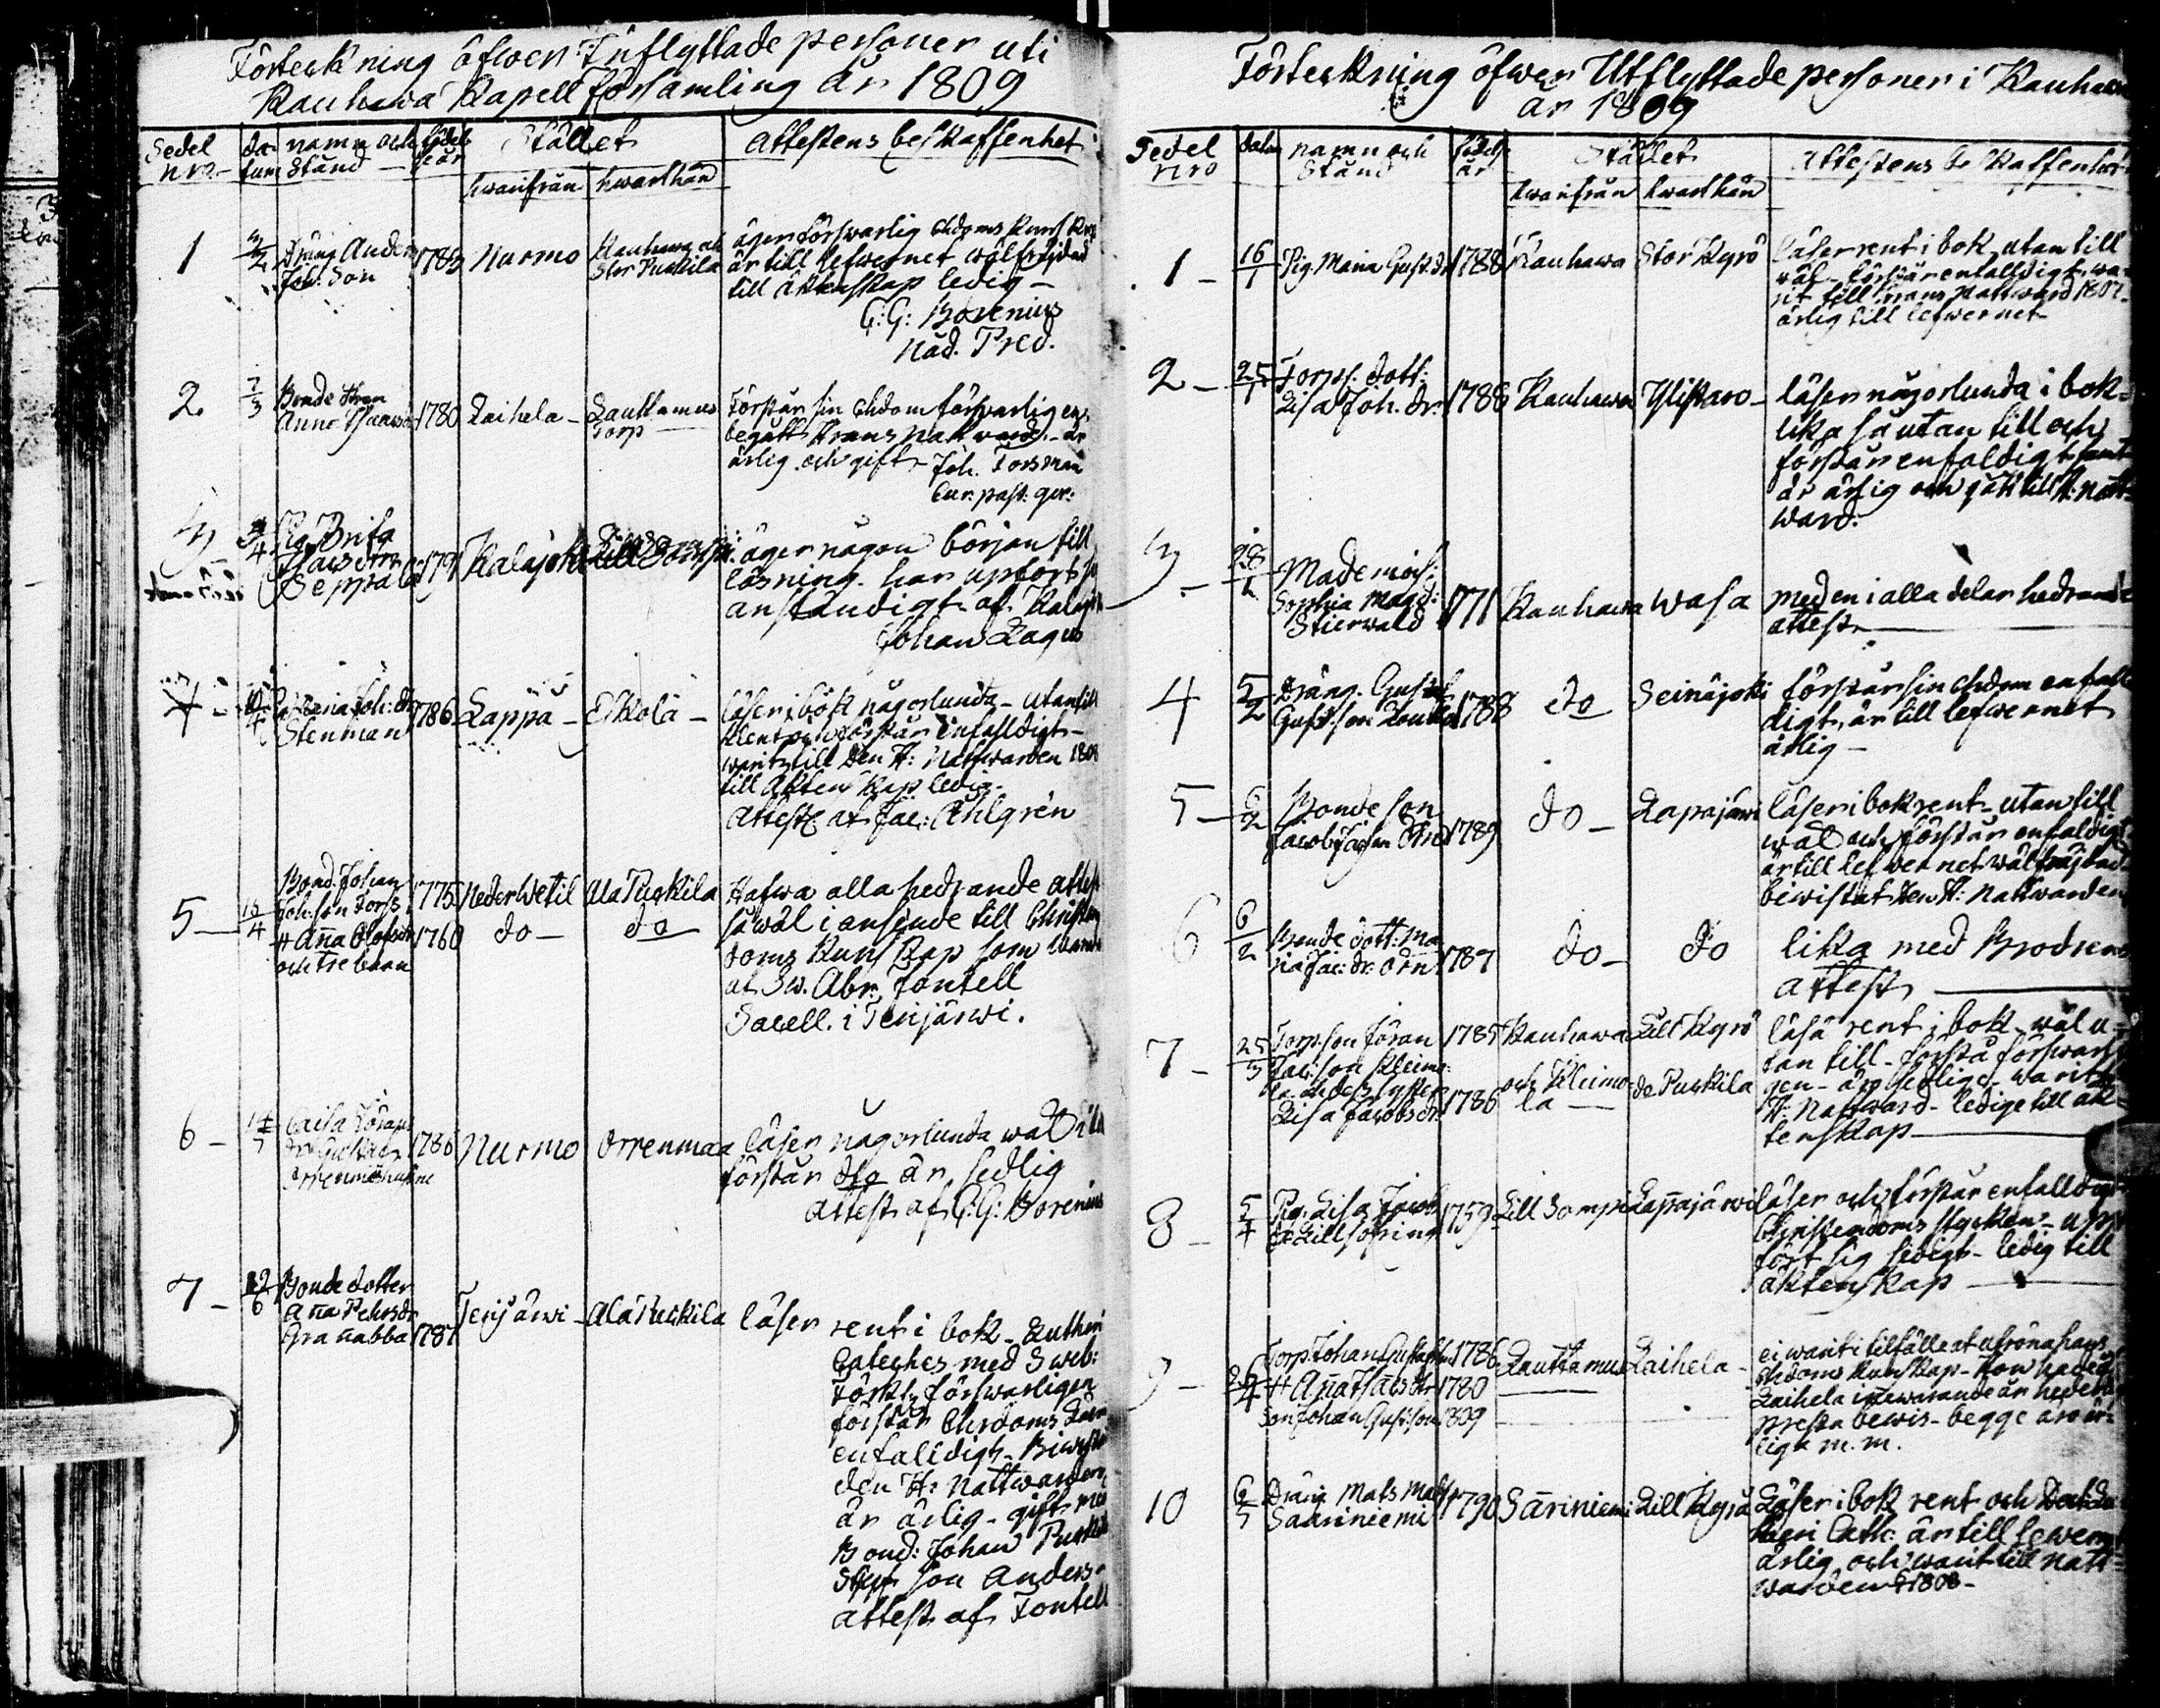 Förteckning öfwer Inflyttade personer uti
Kauhawa Kapell församling år 1809
Sedel nro
datum
namn och Stånd
födelse år
Stället
hwarifrån
hwarthän
Attestens beskaffenhet
1
Dräng Anders
Joh: Son
1783
Nurmo
Kauhawa och
Stor Puckila
äger förswarlig chdoms kunskap
är till lefwernet wälfrejdad
till äktenskap ledig –
G: G: Borenius
Nåd. Pred.
2.
7/3
Bonde Hren
Anna
1780
Laihela –
Lauttamus
Torp
Förstår sin chdom förswarligen,
begått Herrans Nattward. – är
ärlig och gift – Joh. Forsman
Cur. past: ger:
3
Pig. Brita
Seppälä
1791
Kalajoki
äger någon början till
läsning. har upfört sig
anständigt. af Kalajoki
Johan Lagus
4
Maria Joh: dr
Stenman
1786
Lappå –
Eskola –
läser i bok någorlunda – utantill
klent och förstår enfalldigt –
warit till den H: Nattwarden 1808
till Äktenskap ledig –
Attest af Jac: Ahlgrén
5 –
Bond. Johan
Joh: son Forss
H Anna Olofsdr
och tre barn
1775
1760
NederWetil
do –
Ala Puckila
do
Hafwa alla hedrande attest
så wäl i anseende till Christen
doms Kunskap som
af Sw. Abr. Fontell
Sacell. i Terijärwi.
6 –
Caisa Görans
1786
Nurmo
Orrenmaa
läser någorlunda wäl
förstår do är sedlig
attest af G: G: Borenius
7 –
12/6
Bonde dotter
Anna Pehrsdr
Granabba
1787
Terijärwi –
Ala Puckila
läser rent i bok – Lutheri
Cateches med Sweb:
Förkl. förswarligen
förstår Chrdoms Läran
enfalldigt – Biwistat
den H: Nattwarden,
är ärlig – gift med
Bond: Johan Puckila
Styf son Anders –
attest af Fontell
Förteckning öfwer Utflyttade personer i Kauhawa
år 1809
Sedel nro
datum
namn och Stånd
födelse år
Stället
hwarifrån
hwarthän
Attestens beskaffenhet
1 –
16/1
Pig. Maria Gust. dr
1788
Kauhawa
Stor Kyrö
läser rent i bok, utan till
wäl – förstår enfalldigt, wa-
rit till Hrans Nattward 1807 –
ärlig till lefwernet –
2 –
25/1
Torps: dott:
Lisa Joh. dr.
1786
Kauhawa
Ylistaro –
läser någorlunda i bok –
lika så utan till och
förstår enfaldigt samt
är ärlig och gått till H: natt-
ward:
3 –
28/1
Mademois:
Sophia Magd:
Stierwald
1771
Kauhawa
Wasa
med en i alla delar hedrande
attest –
4
5/2
Dräng. Gustaf
Gust: son
1788
do
Seinäjoki
förstår sin chdom enfall-
digt, är till lefwernet
ärlig –
5 –
6/2
Bonde son
Jacob Jac: son Örn
1789
do –
Lapajärwi
läser i bok rent – utan till
wäl och förstår enfaldigt
är till lefwernet wälfräjdad
biwistat den H: Nattwarden
6
6/2
Bonde dott: Ma
ria Jac: dr. Örn
1787
do –
do
lika med Brodrens
attest –
7 –
25/3
Torp. son Göran
Jac: son Kleimo-
la och des syster
Lisa Jacobs dr
1785
1786
Kauhawa
och Kleimo-
la –
Lill Kyrö
do Puckila
läsa rent i bok – wäl u-
tan till – förstå förswarli-
gen – äro sedlige – warit
H: Nattward – ledige till äk-
tenskap –
8 –
5/4
Pig. Lisa Jacob
dr
1759
Lill Sompi
Lappajärwi
läser och förstår enfalldigt
Christendoms stycken – upp-
fört sig sedigt – ledig till
äktenskap –
9 –
26/4
Torp. Johan Gustafson
H Anna
Son Johan Gust: son
1786
1780
1809
Lauttamus
Laihela –
ej warit i tillfälle at utröna hans
Chdoms Kunskap –
Laihela
presta bewis – begge äro är-
liga m. m.
10
6/5
Dräng Mats Matsson
Saariniemi
1790
Särinniemi
Lill Kyrö
Läser i bok rent och
är till lefwernet
ärlig och warit till natt-
warden 1808 –